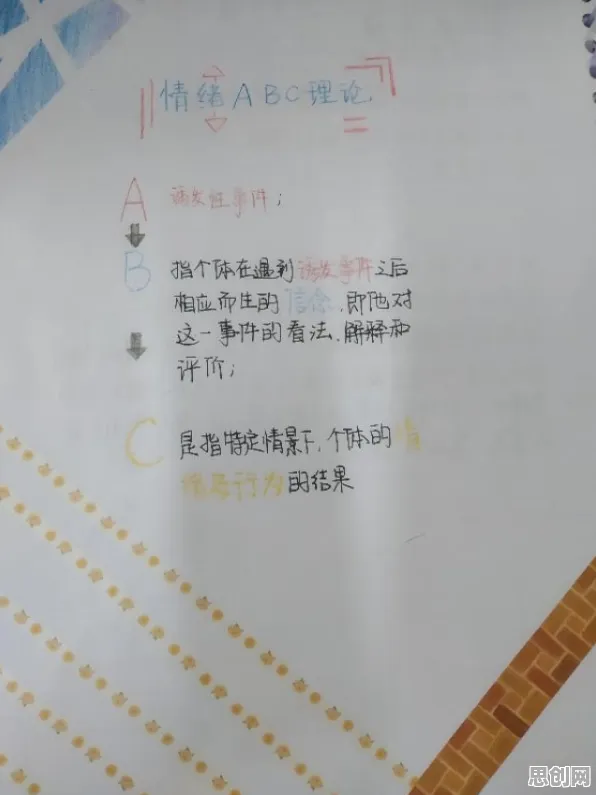 情绪ABC理论
A 诱发性事件；
B 指个体在遇到诱发事件之后
相应而生的信念,即他对
这一事件的看法、解释和
评价；
C 是指特定情景下,个体的情
绪及行为的结果
思创网